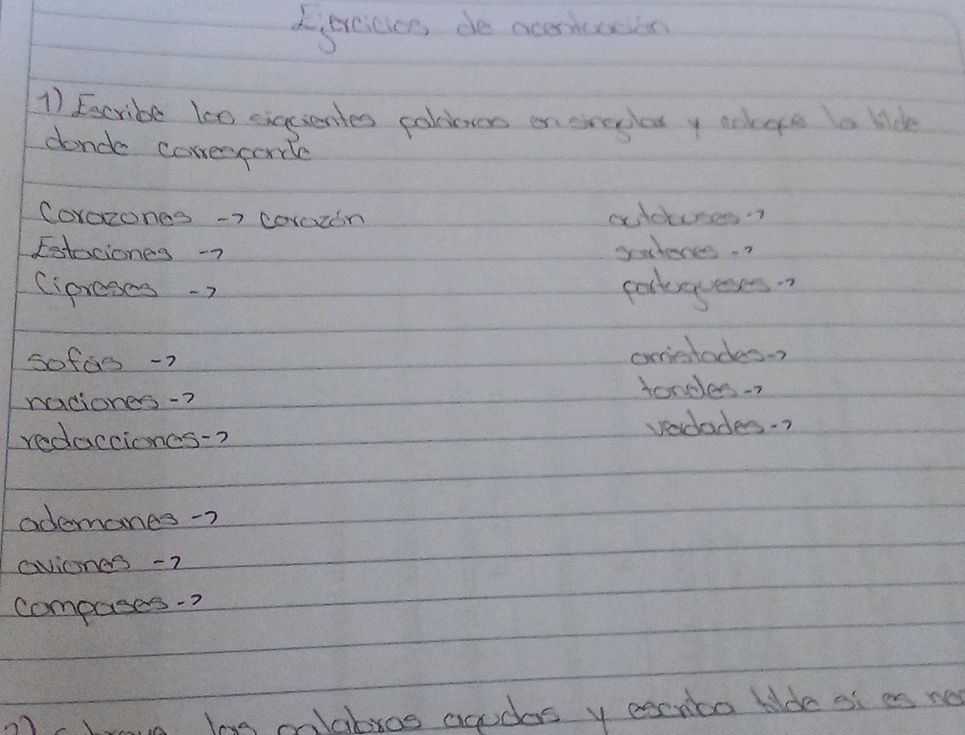 Ejercicios de acentuación
1) Escribe las siguientes palabras en singular y coloque la tilde
donde corresponde
Corazones -> corazón
Estaciones ->
Cipreses ->
sofás ->
naciones ->
redacciones ->
ademanes ->
aviones ->
compases ->
autobuses ->
sartenes ->
portugueses ->
amistades ->
toneles ->
verdades ->
2) las palabras agudas y escriba tilde si es